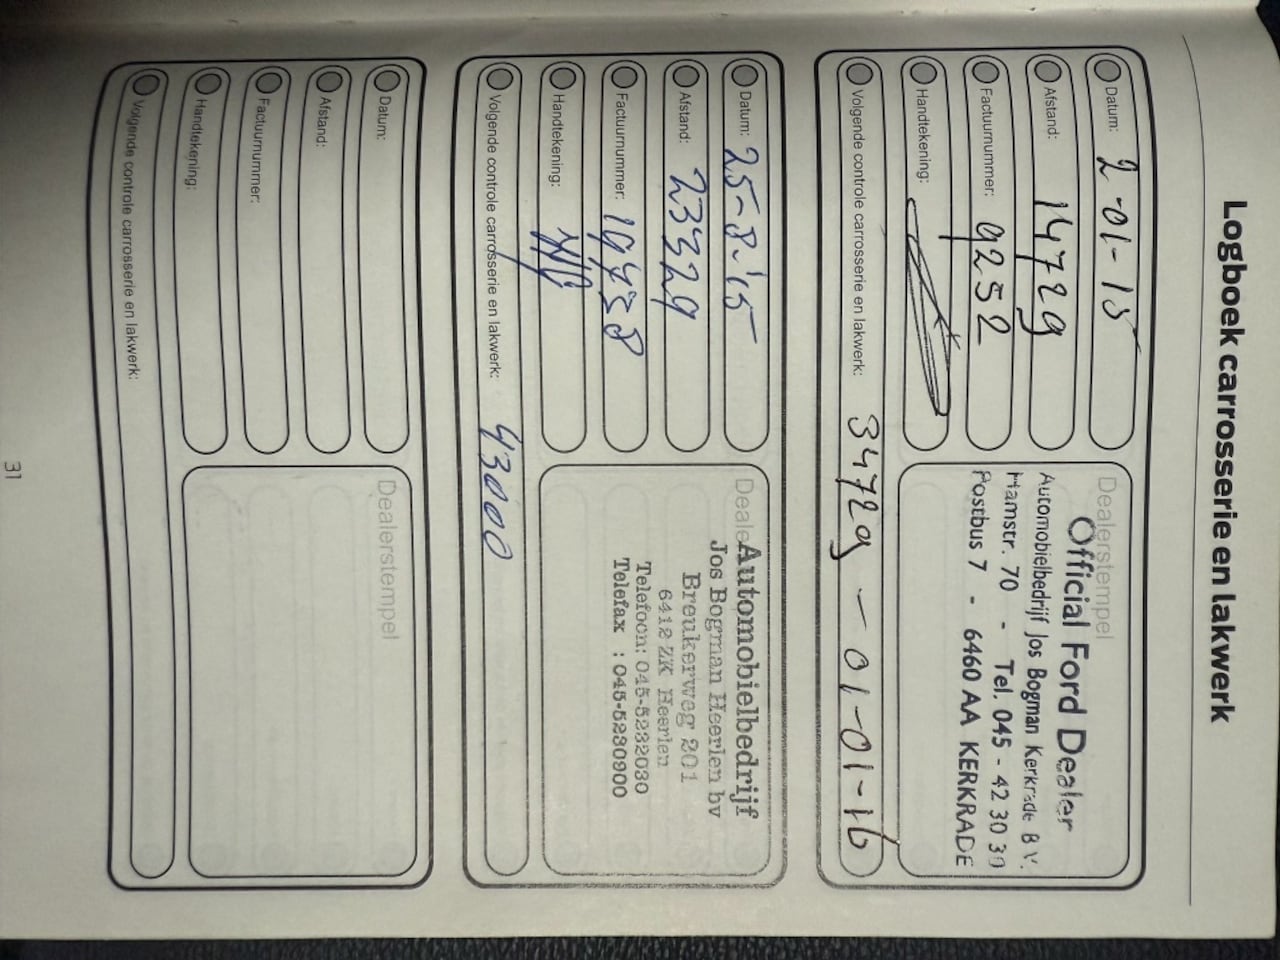 Logboek carrosserie en lakwerk
Datum: 2-01-15
Afstand: 14729
Factuurnummer: 9252
Handtekening:
Volgende controle carrosserie en lakwerk: 34729 - 01-01-16
Dealerstempel
Official Ford Dealer
Automobielbedrijf Jos Bogman Kerkrade B.V.
Hamstr. 70 - Tel. 045 - 42 30 30
Postbus 7 - 6460 AA KERKRADE
Datum: 25-8-'15
Afstand: 23329
Factuurnummer:
Handtekening:
Volgende controle carrosserie en lakwerk: 43000
Automobielbedrijf
Jos Bogman Heerlen bv
Breukerweg 201
6412 ZK Heerlen
Telefoon: 045-5232030
Telefax : 045-5230900
Datum:
Afstand:
Factuurnummer:
Handtekening:
Volgende controle carrosserie en lakwerk:
Dealerstempel
31